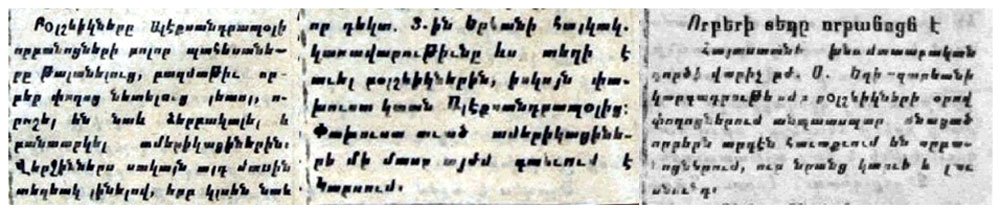 Բօլշևիկները Ալէքսանդրապօլի
որբանոցների բոլոր պահեստնե-
րը թալանելուց, բազմաթիւ որ-
բեր փողոց նետելուց յետոյ, ո-
րոշել են նաև ձերբակալել և
բանտարկել ամերիկացիներին:
Վերջիններս սակայն այդ մասին
տեղեակ լինելով, երբ կլսեն նաև
որ դեկտ. 3-ին Երևանի Հայկակ.
կառավարութիւնը ևս տեղի է
տւել բօլշևիկներին, իսկոյն փա-
խուստ կտան Ալէքսանդրապօլից:
Փախուստ տւած ամերիկացինե-
րի մի մասը այժմ գտնւում է
Կարսում.
Որբերի տեղը որբանոցն է
Հայաստանի խնամատարական
գործի վարիչ բժ. Մ. Եղի-զարեանի
բօլշևիկների օրով
փողոցներում անպատսպար մնացած
որբերն արդէն հաւաքւում են որբա-
նոցներում, ուր նրանց կարւի և լաւ
սնունդ: